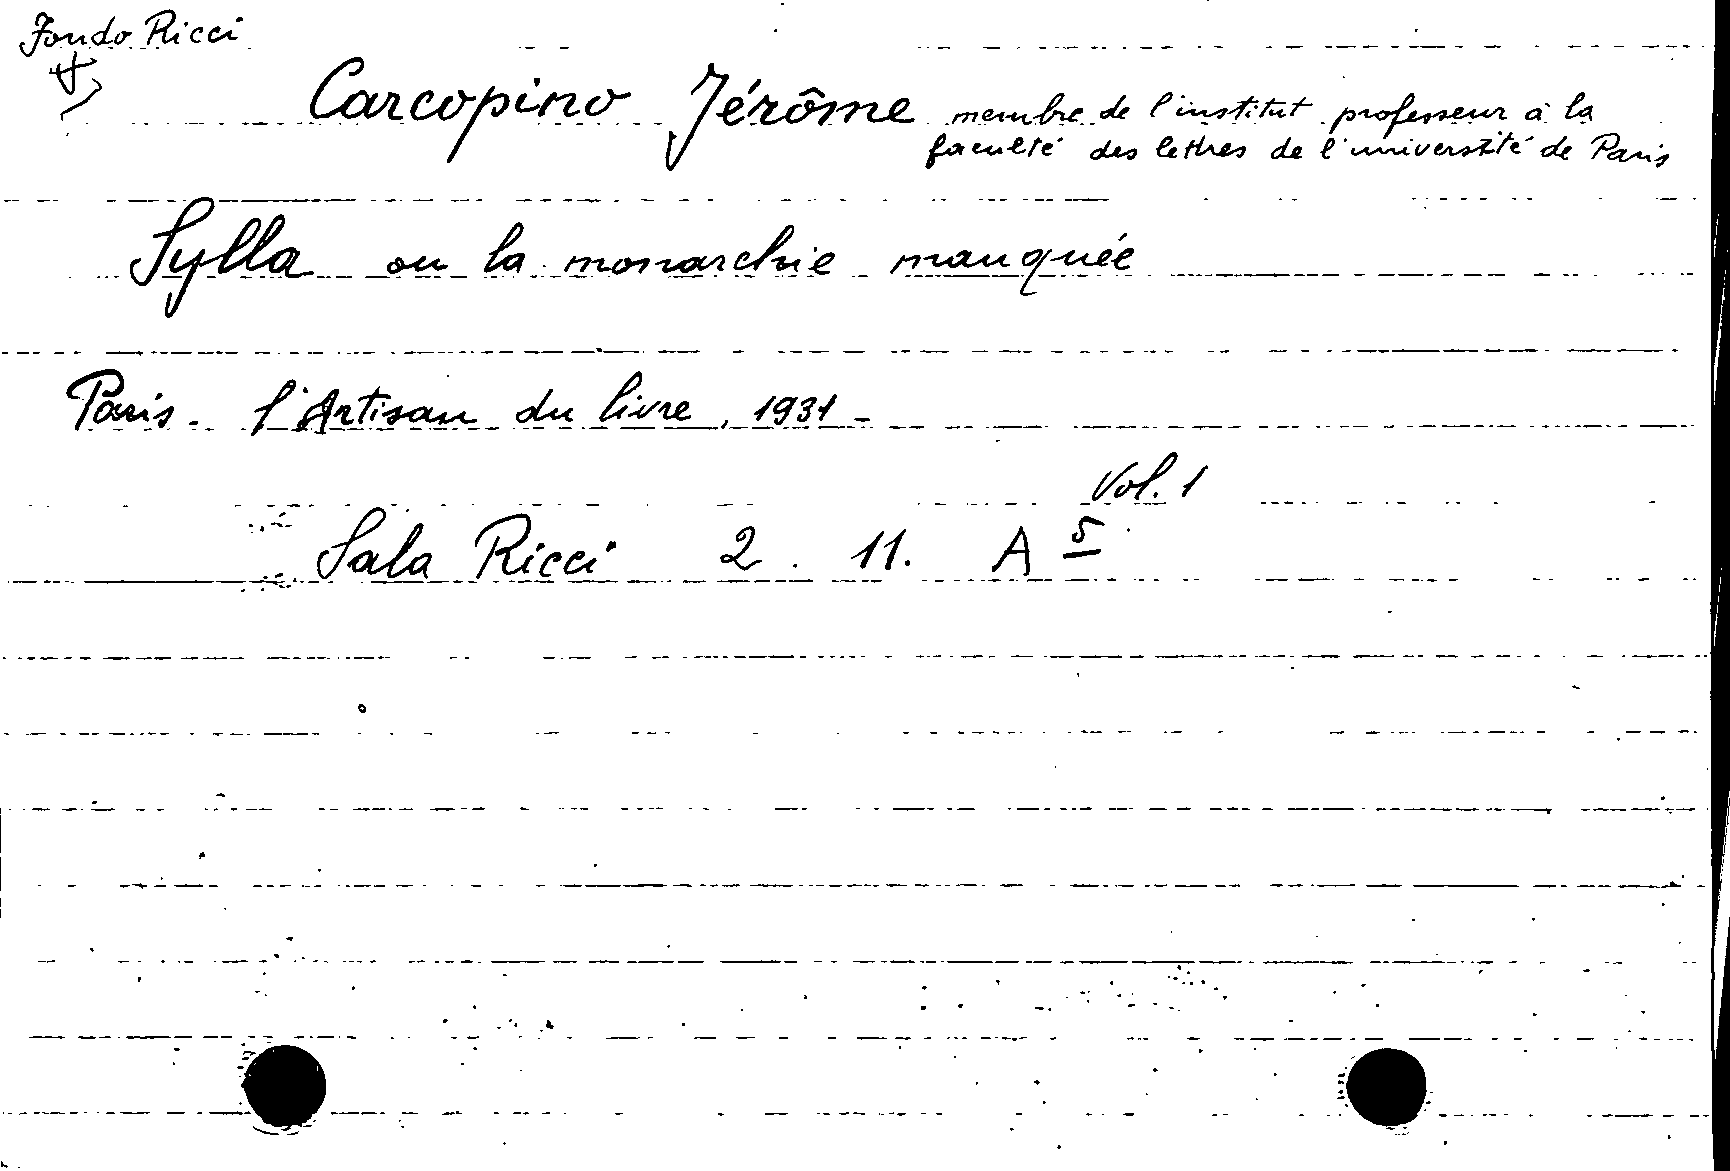 Fondo Ricci
Carcopino Jérôme membre de l'institut professeur à la
faculté des lettres de l'université de Paris
Sylla ou la monarchie manquée
Paris. l'Artisan du livre, 1931 -
Vol. 1
Sala Ricci 2. 11. A 5